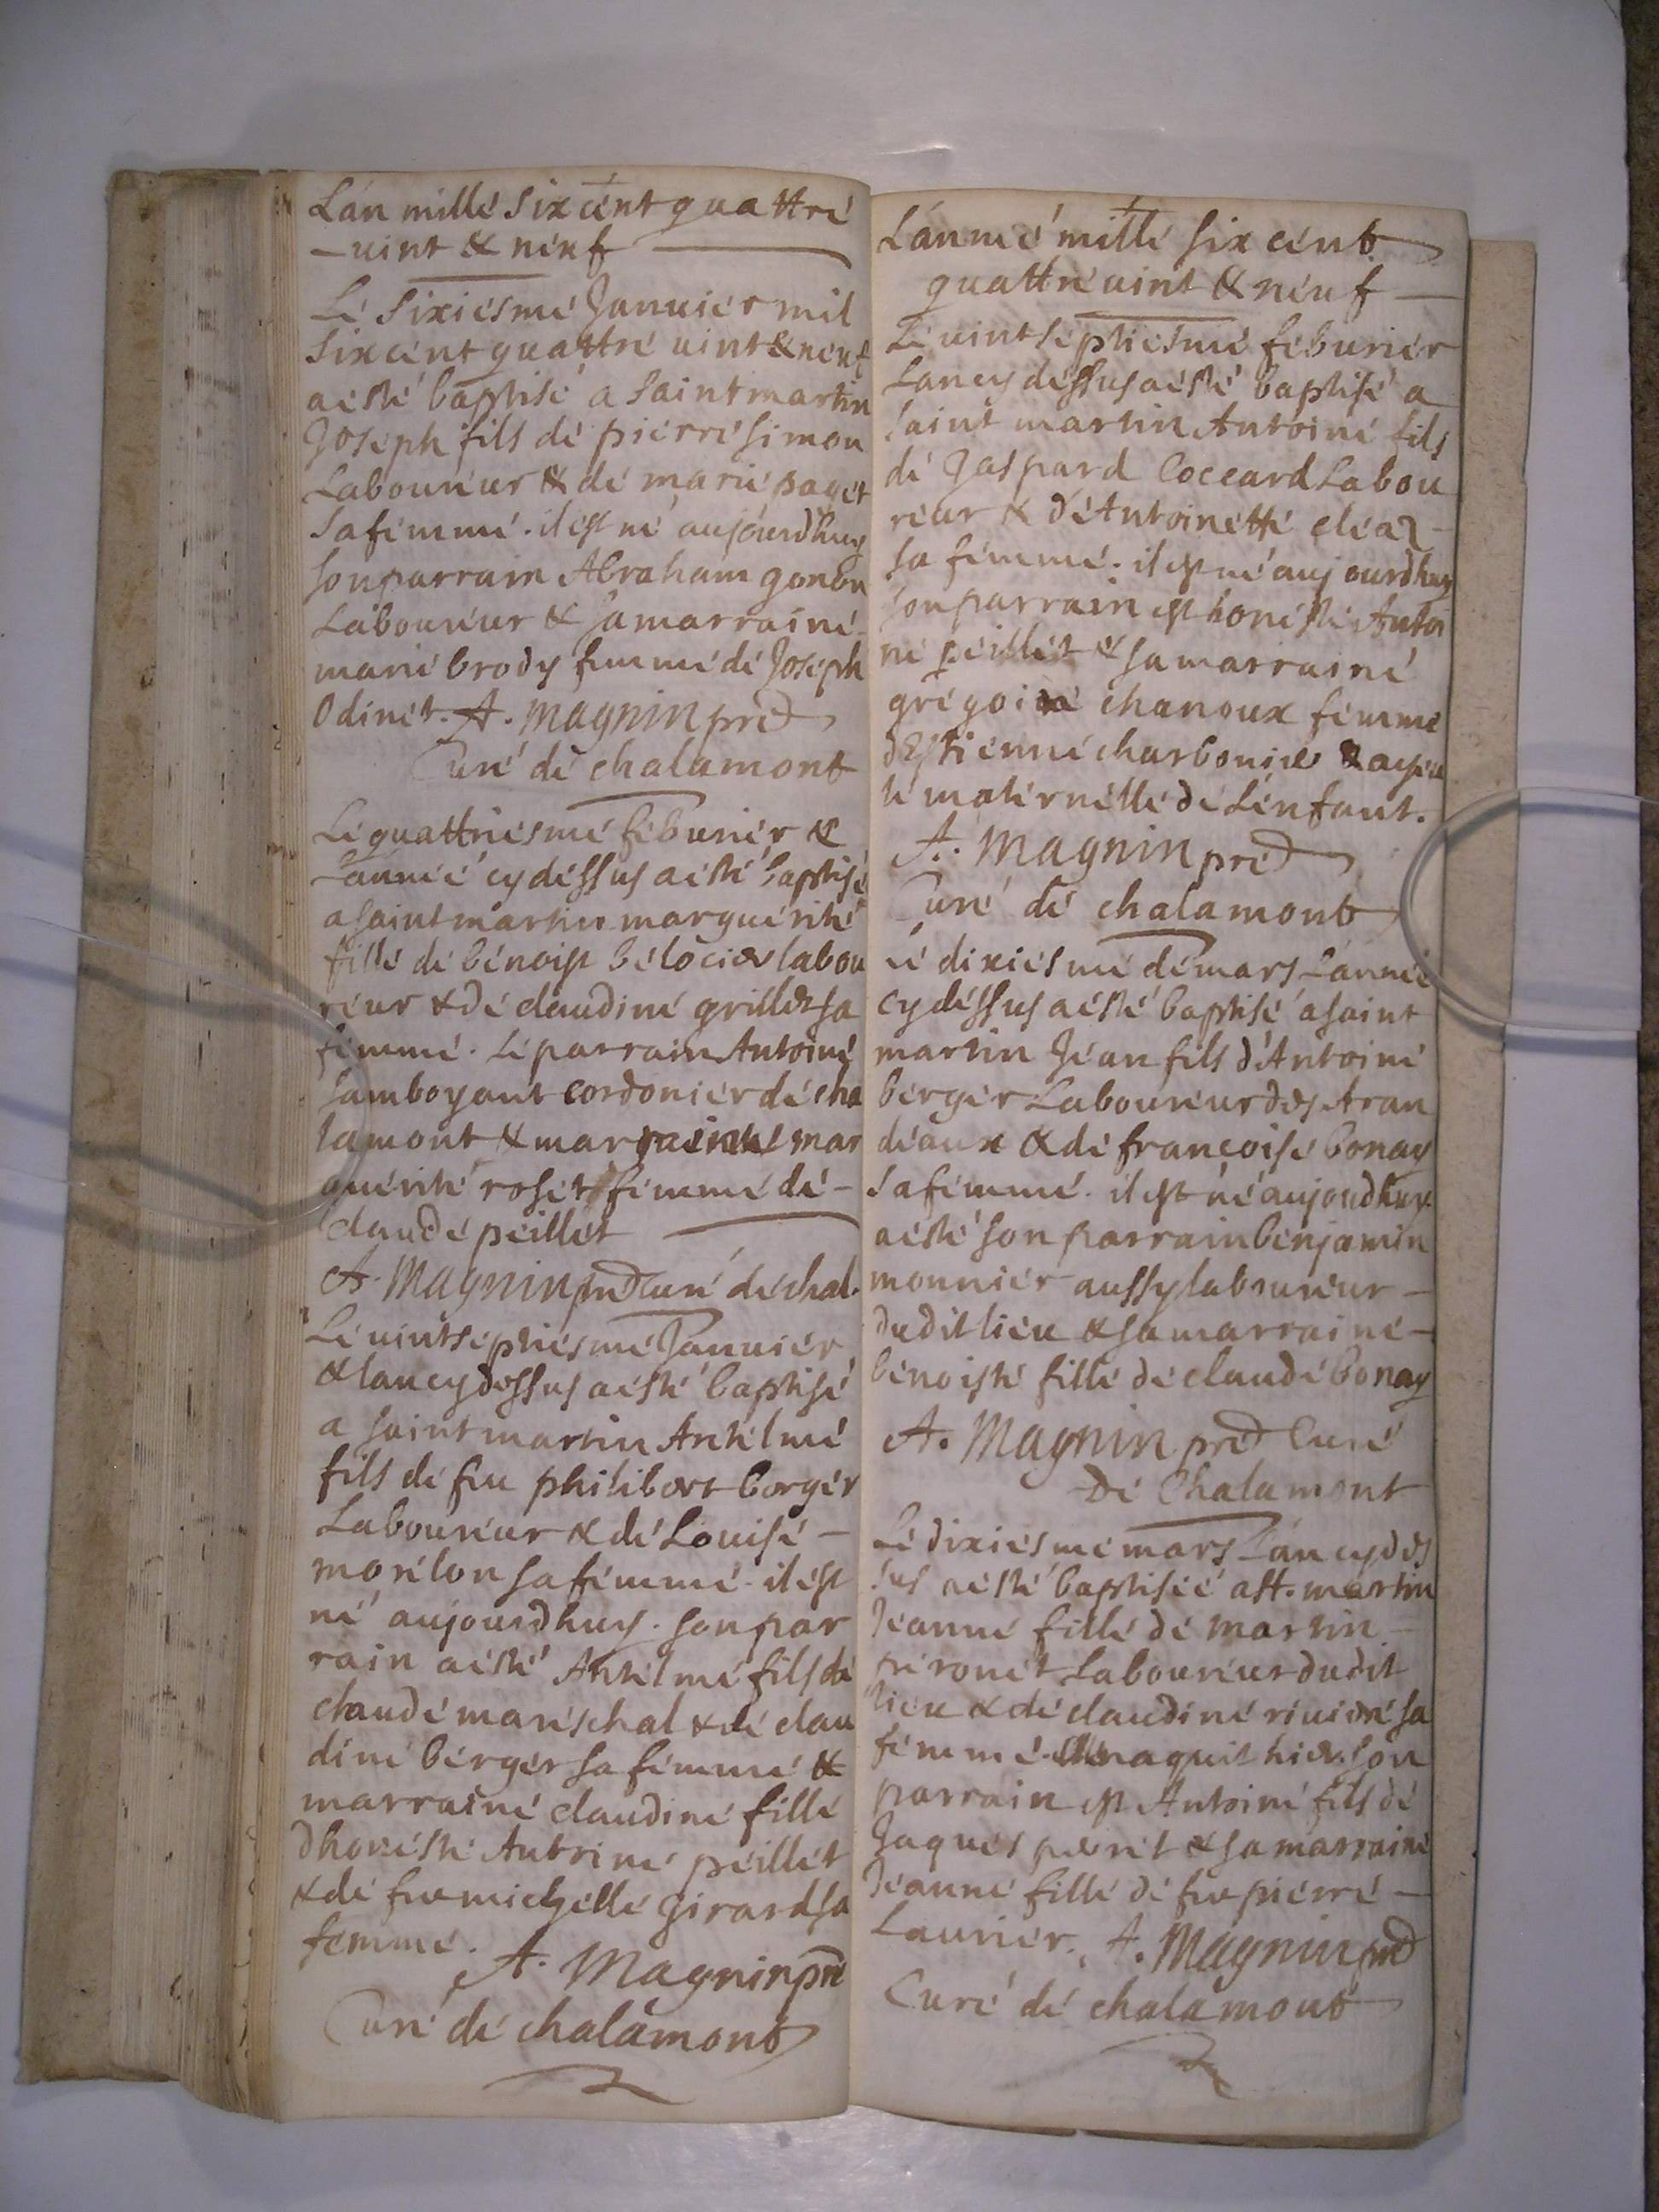 Lán millé Six cént quattré
– uint & néuf
Lé Sixiésmé Januiér mil
Sixcént quattré uint & néuf
aésté baptisé a Saint martin
Joséph fils dé piérré simon
Labouréur & dé marié pagét
Safémmé. il ést né aujourdhuy
son parrain Abraham gonon
Labouréur & sa marrainé
marié brody fémmé dé Joséph
Odinét. A. Magnin pre
Curé dé chalamont
Lé quattriésmé féburiér &
Lánnéé cy déssus aésté baptisé
a saint martin marguérité
fillé dé bénoist bélociér labou
réur & dé claudiné grillét sa
fémmé. Lé parrain Antoiné
Jamboyant cordoniér dé cha
lamont & marrainé mar
guérité rosét fémmé dé –
claudé péillét
A. Magnin pre curé dé chal.
Lé uintséptiésmé Januiér
& lan cy déssus aésté baptisé
a saint martin Anthélmé
fils dé feu philibért bérgér
Labouréur & dé Louisé –
morélon sa fémmé. il ést
né aujourdhuy. son par
rain aésté Anthélmé fils dé
claudé maréschal & dé clau
diné bérgér sa fémmé &
marrainé claudiné fillé
dhonésté Antoiné péillét
& dé feue michéllé Girard sa
femmé.
A. Magnin pre
Curé dé chalamont
Lánnéé millé six cént
quattré uint & néuf –
Lé uint séptiésmé féburiér
Lan cy déssus aésté baptisé a
saint martin Antoiné fils
dé Jaspard Coccard Labou
réur & d'Antoinétté cléaz –
sa fémmé. il ést né aujourdhuy
son parrain ést honésté Antoi
né péillét & sa marrainé
grégoiré chanoux fémmé
d'Estienné charboniér & ayéu
lé matérnéllé dé Lénfant.
A. Magnin pre
Curé dé chalamont
Lé dixiésmé dé mars Lánnéé
cy déssus aésté baptisé a saint
martin Jéan fils d'Antoiné
bérgér Labouréur dés Aran
déaux & dé françoisé bonay
sa fémmé. il ést né aujourdhuy.
aésté son parrain bénjamin
monniér aussy labouréur –
dudit liéu & sa marrainé –
bénoisté fillé dé claudé bonay
A. Magnin pre Curé
Dé Chalamont
Lé dixiésmé mars Lán cy dés
sus aésté baptiséé a St. martin
Jéanné fillé dé martin –
péronét Labouréur dudit
liéu & dé claudiné riuiéré sa
fémmé. éllé naquit hiér. son
parrain ést Antoiné fils dé
Jaqués pérét & sa marrainé
Jéanné fillé dé feu piérré –
Lauriér. A. Magnin pre
Curé dé chalamont